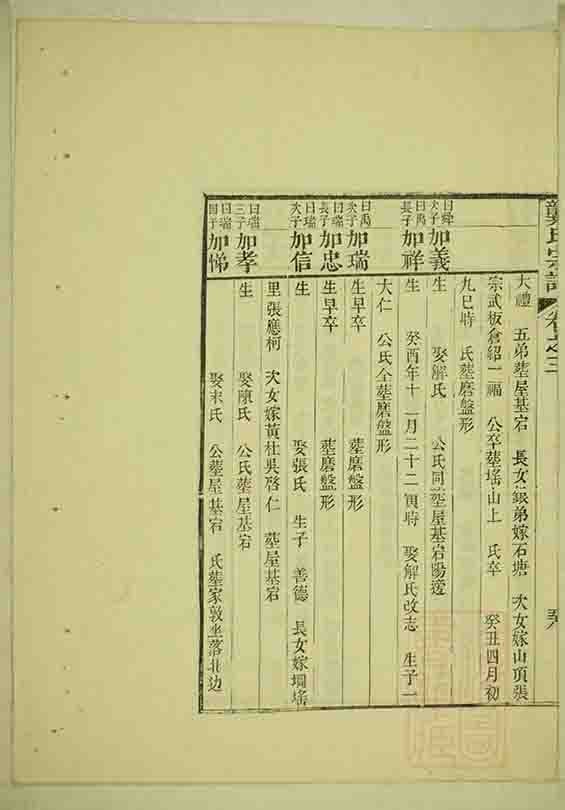 龔氏宗譜 卷之三
大禮 五弟塟屋基宕 長女銀弟嫁石塘 次女嫁山頂張
宗武板倉紹一福 公卒塟墧山上 氏卒 癸丑四月初
九巳時 氏塟磨盤形
曰舜次子加義 生 娶解氏 公氏同塟屋基宕陽邊
曰禹長子加祥 生 癸酉年十一月二十二寅時 娶解氏改志 生子一
大仁 公氏仝塟磨盤形
曰禹次子加瑞 生早卒 塟磨盤形
曰瑞長子加忠 生早卒 塟磨盤形
曰瑞次子加信 生 娶張氏 生子 善德 長女嫁墹墧
里張應柯 次女嫁黃杜吳啓仁 塟屋基宕
曰瑞三子加孝 生 娶陳氏 公氏塟屋基宕
曰瑞四子加悌 娶宋氏 公塟屋基宕 氏塟家敦坐落北边